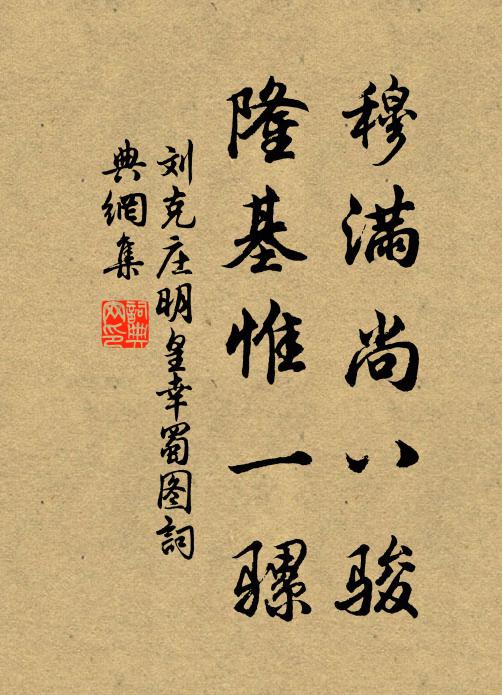 穆满尚八骏
隆基惟一骡
刘克庄明皇幸蜀图词
典网集
詞典
网印